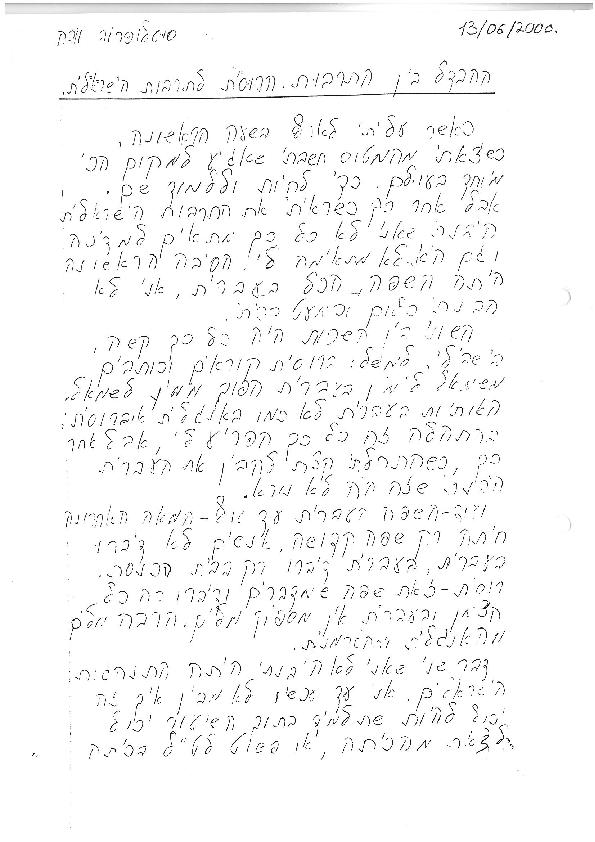 13/06/2000.
ההבדל בין התרבות הרוסית לתרבות הישראלית.
כאשר עליתי לארץ בשעה הראשונה,
כשיצאתי מהמטוס חשבתי שאגיע למקום הכי
מיוחד בעולם. כדי לחיות וללמוד שם.
אבל אחר כך כשראיתי את התרבות הישראלית
הבנתי שאני לא כל כך מתאים למדינה
וגם היא לא מתאימה לי. הסיבה הראשונה
היתה השפה, הכל בעברית, אני לא
הבנתי כלום
השוני בין השפות היה כל כך קשה,
בשבילי, למשל: ברוסית קוראים וכותבים
משמאל לימין בעברית הפוך מימין לשמאל.
האותיות בעברית לא כמו באנגלית או ברוסית:
בהתחלה זה כל כך הפריע לי, אבל אחר
כך, כשהתחלתי קצת להבין את העברית
הבנתי שזה היה לא נורא.
ועוד-השפה העברית עד המאה האחרונה
היתה רק שפה קדושה, אנשים לא דיברו
בעברית, בעברית דיברו רק בבית הכנסת.
רוסית-זאת שפה שמדברים ודיברו בה כל
הזמן ובעברית אין מספיק מלים. הרבה מלים
מהאנגלית והגרמנית.
דבר שני שאני לא הבנתי היתה התנהגות
הישראלים. אני עד עכשיו לא מבין איך זה
יכול להיות שתלמיד בתוך השיעור יכול
לצאת מהכיתה, או פשוט לטייל בכיתה